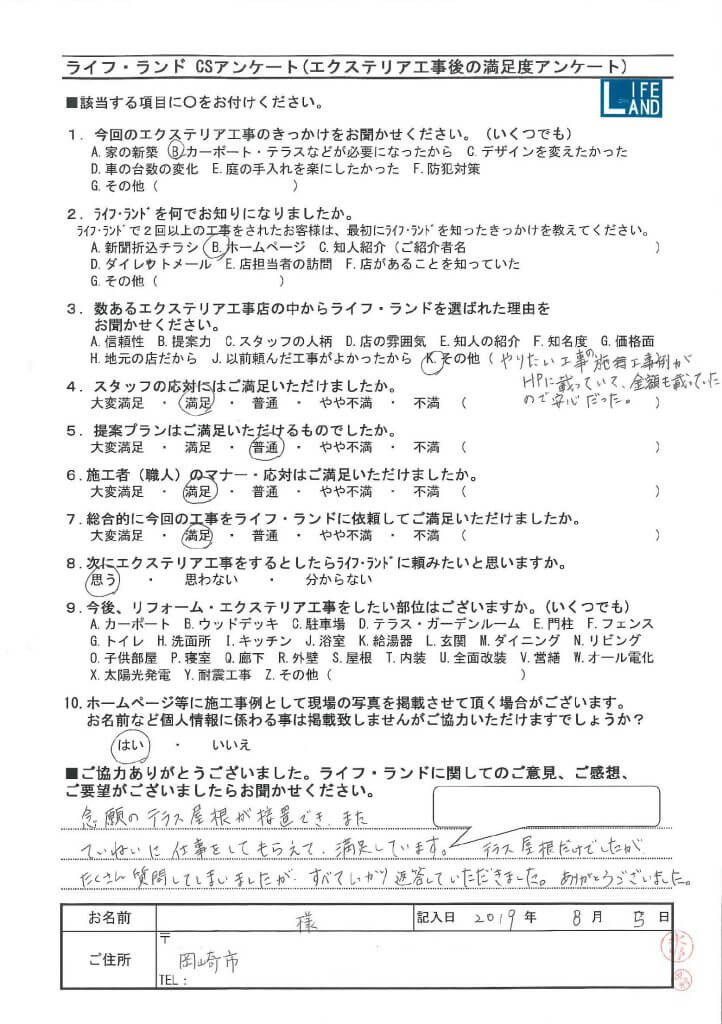 ライフ・ランド CSアンケート(エクステリア工事後の満足度アンケート)
LIFE LAND
■該当する項目に〇をお付けください。
1. 今回のエクステリア工事のきっかけをお聞かせください。(いくつでも)
A.家の新築 B.カーポート・テラスなどが必要になったから C.デザインを変えたかった
D.車の台数の変化 E.庭の手入れを楽にしたかった F.防犯対策
G.その他( )
2. ﾗｲﾌ･ﾗﾝﾄﾞを何でお知りになりましたか。
ﾗｲﾌ･ﾗﾝﾄﾞで2回以上の工事をされたお客様は、最初にﾗｲﾌ･ﾗﾝﾄﾞを知ったきっかけを教えてください。
A.新聞折込チラシ B.ホームページ C.知人紹介(ご紹介者名 )
D.ダイレクトメール E.店担当者の訪問 F.店があることを知っていた
G.その他( )
3. 数あるエクステリア工事店の中からライフ・ランドを選ばれた理由を
お聞かせください。
A.信頼性 B.提案力 C.スタッフの人柄 D.店の雰囲気 E.知人の紹介 F.知名度 G.価格面
H.地元の店だから J.以前頼んだ工事がよかったから K.その他(やりたい工事の施工工事例が
HPに載っていて、金額も載っていた
ので安心だった。)
4. スタッフの応対にはご満足いただけましたか。
大変満足 ・ 満足 ・ 普通 ・ やや不満 ・ 不満 (
5. 提案プランはご満足いただけるものでしたか。
大変満足 ・ 満足 ・ 普通 ・ やや不満 ・ 不満 ( )
6. 施工者(職人)のマナー・応対はご満足いただけましたか。
大変満足 ・ 満足 ・ 普通 ・ やや不満 ・ 不満 ( )
7. 総合的に今回の工事をライフ・ランドに依頼してご満足いただけましたか。
大変満足 ・ 満足 ・ 普通 ・ やや不満 ・ 不満 ( )
8. 次にエクステリア工事をするとしたらﾗｲﾌ･ﾗﾝﾄﾞに頼みたいと思いますか。
思う ・ 思わない ・ 分からない
9. 今後、リフォーム・エクステリア工事をしたい部位はございますか。(いくつでも)
A.カーポート B.ウッドデッキ C.駐車場 D.テラス・ガーデンルーム E.門柱 F.フェンス
G.トイレ H.洗面所 I.キッチン J.浴室 K.給湯器 L.玄関 M.ダイニング N.リビング
O.子供部屋 P.寝室 Q.廊下 R.外壁 S.屋根 T.内装 U.全面改装 V.営繕 W.オール電化
X.太陽光発電 Y.耐震工事 Z.その他( )
10.ホームページ等に施工事例として現場の写真を掲載させて頂く場合がございます。
お名前など個人情報に係わる事は掲載致しませんがご協力いただけますでしょうか?
はい ・ いいえ
■ご協力ありがとうございました。ライフ・ランドに関してのご意見、ご感想、
ご要望がございましたらお聞かせください。
念願のテラス屋根が設置でき、また
ていねいに仕事をしてもらえて、満足しています。テラス屋根だけでしたが
たくさん質問してしまいましたが、すべて返答していただきました。ありがとうございました。
お名前 様 記入日 2019 年 8 月 5 日
ご住所 〒
岡崎市
TEL: